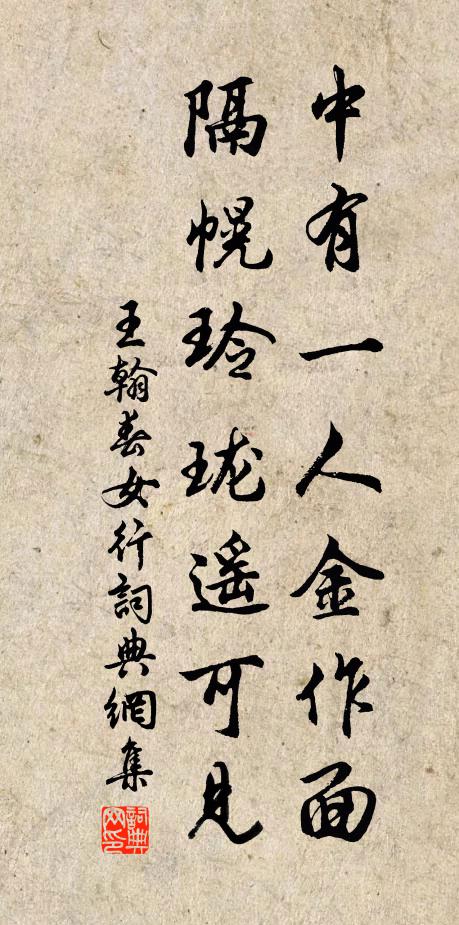 中有一人金作面
隔幌玲珑遥可見
王翰春女行詞典網集
詞典网印